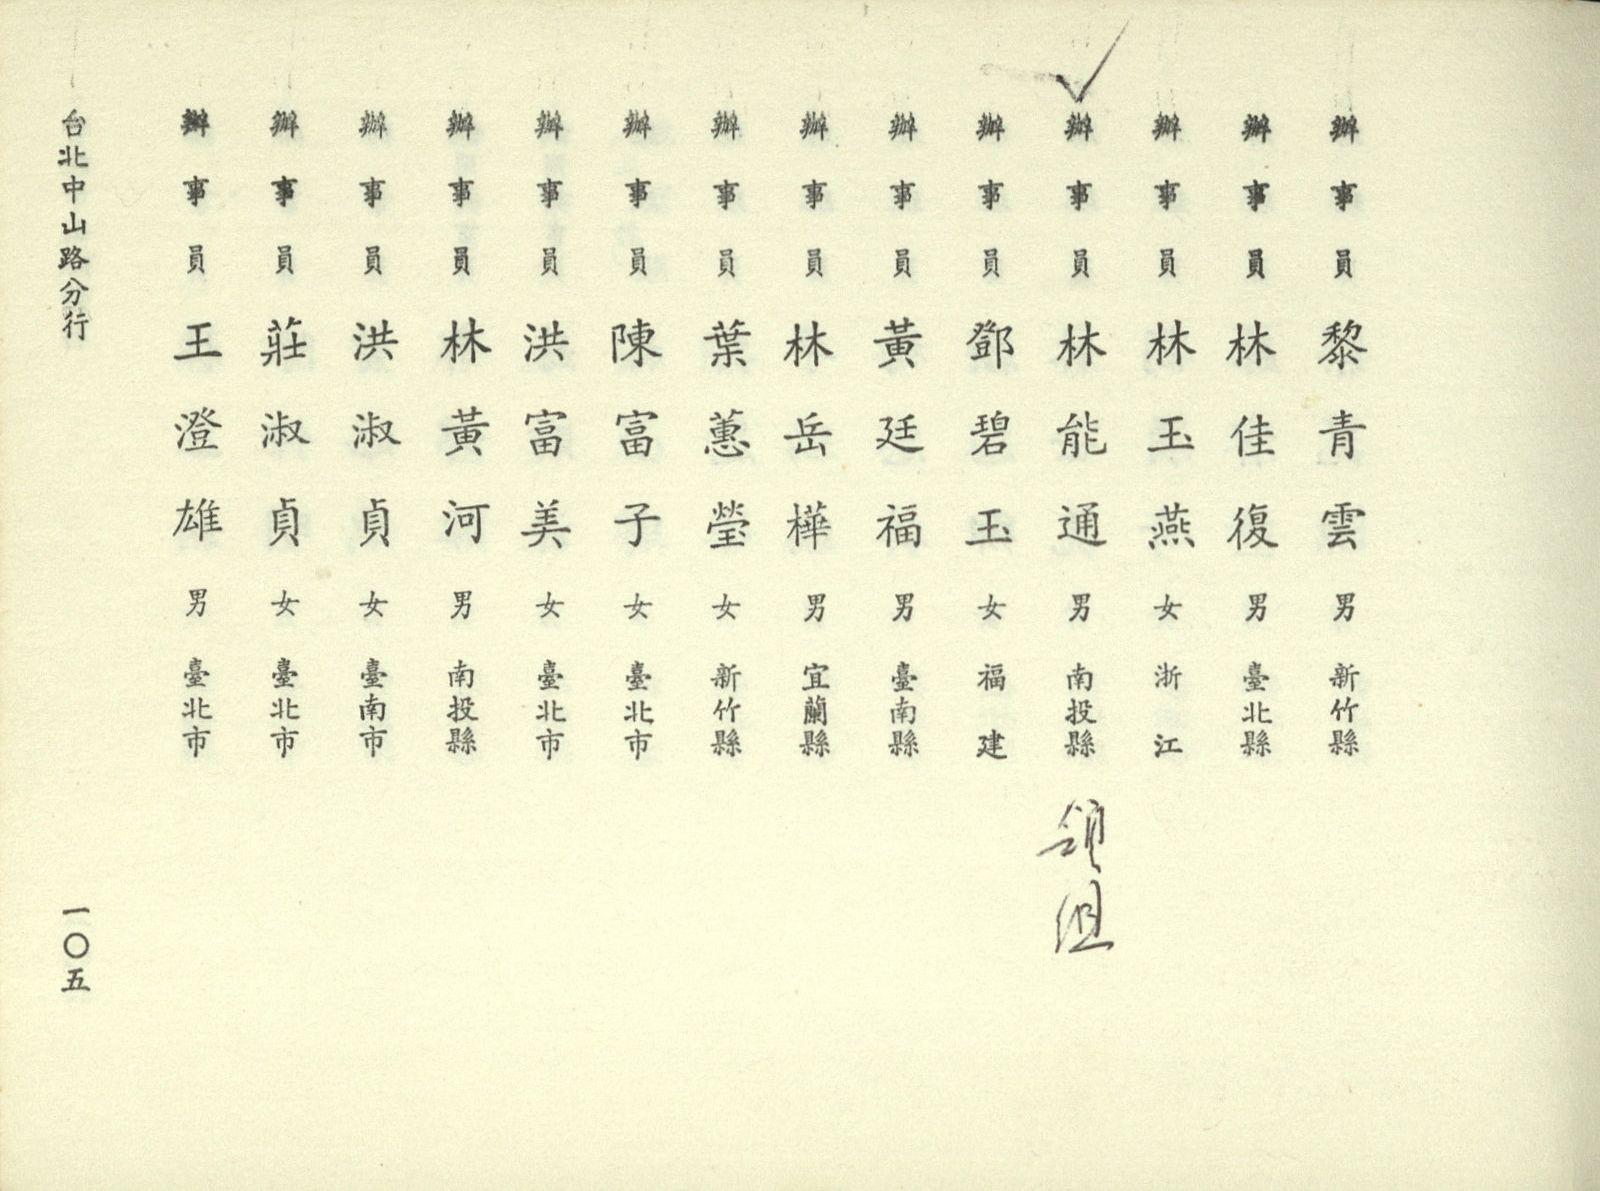 辦事員 黎青雲 男 新竹縣
辦事員 林佳復 男 臺北縣
辦事員 林玉燕 女 浙江
辦事員 林能通 男 南投縣 領組
辦事員 鄧碧玉 女 福建
辦事員 黃廷福 男 臺南縣
辦事員 林岳樺 男 宜蘭縣
辦事員 葉蕙瑩 女 新竹縣
辦事員 陳富子 女 臺北市
辦事員 洪富美 女 臺北市
辦事員 林黃河 男 南投縣
辦事員 洪淑貞 女 臺南市
辦事員 莊淑貞 女 臺北市
辦事員 王澄雄 男 臺北市
台北中山路分行 一〇五